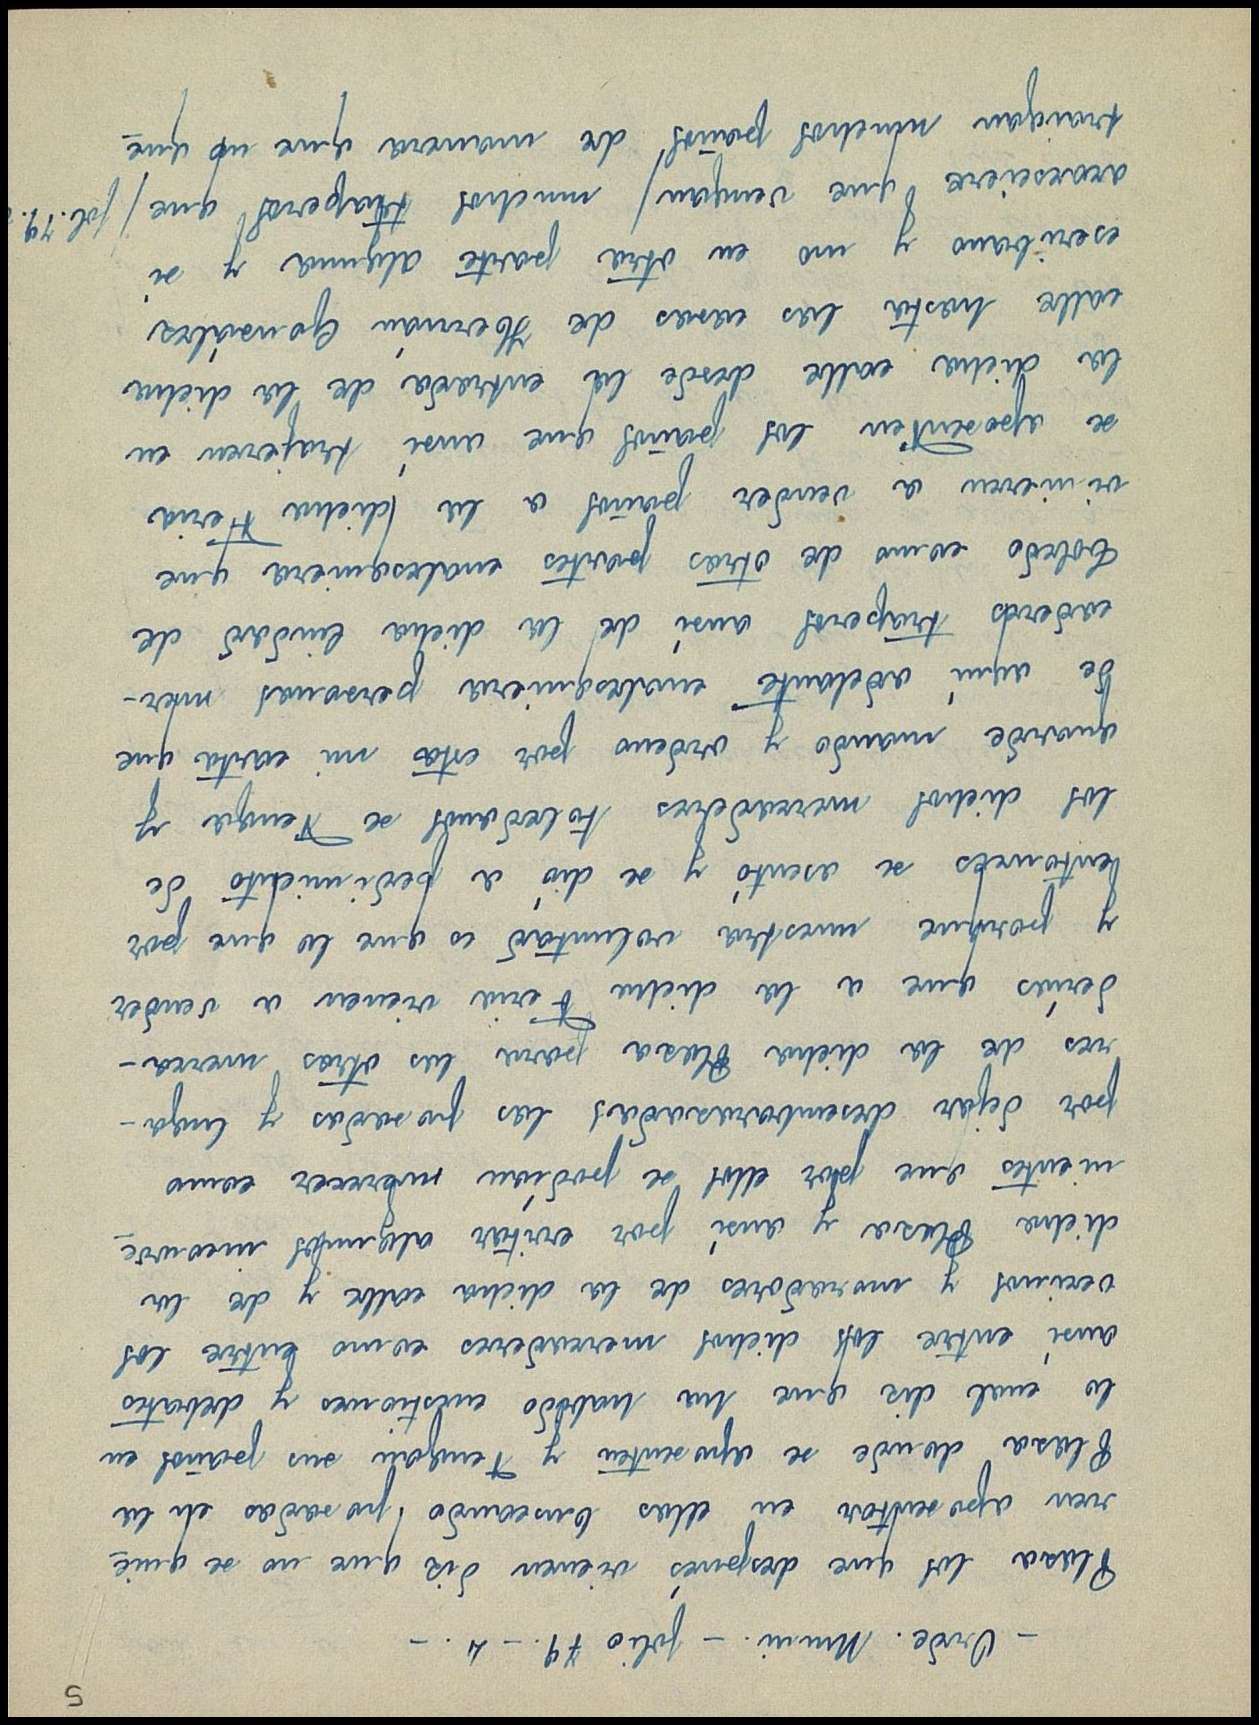 5
- Orde. Muni. - folio 79. - 4. -
Plasa los que después vienen dis que no se quie
ren aposentar en ellas buscando posadas en la
Plasa donde se aposenten y Tengan sus paños en
lo cual dis que ha habido cuestiones y debates
ansí entre los dichos mercaderes como entre los
vecinos y moradores de la dicha calle y de la
dicha Plasa y ansí por evitar algunos inconve
nientes que por ellos se podían recrecer como
por dejar desembarasadas las posadas y luga-
res de la dicha Plasa para las otras merca-
derías que a la dicha Feria vienen a vender
y porque nuestra voluntad es que lo que por
entonces se asentó y se dió a pedimiento de
los dichos mercaderes toledanos se Tenga y
guarde mando y ordeno por esta mi carta que
de aquí adelante cualesquiera personas mer-
caderos traperos ansí de la dicha ciudad de
Toledo como de otras partes cualesquiera que
vinieren a vender paños a la dicha Feria
se aposenten los paños que ansí trajeren en
la dicha calle desde la entrada de la dicha
calle hasta las casas de Hernán Gonsáles
escribano y no en otra parte alguna y si
acaesciere que vengan / muchos traperos que / fol. 79.
traigan muchos paños de manera que no que